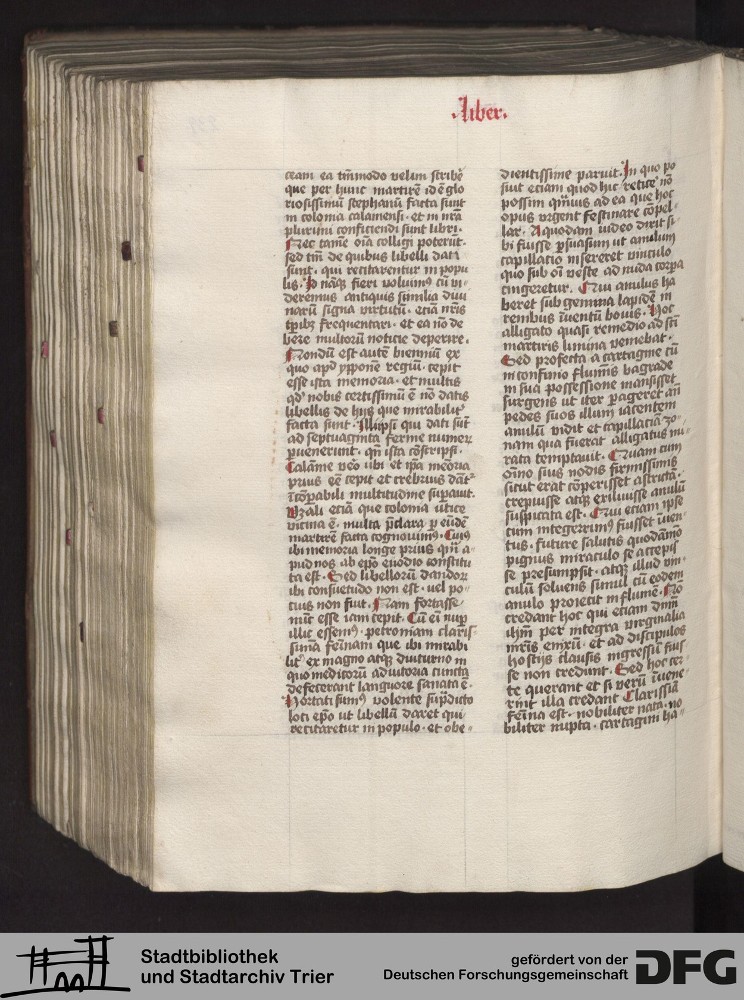 .Liber.
ceam ea tm̄modo velim scribe͞
que per hunc martirē id ē glo
riosissimū stephanū facta sunt
in colonia calamensi · et in nr̄a
plurimi conficiendi sunt libri ·
Nec tamē oīa colligi poterūt ·
sed tm̄ de quibus libelli dati
sunt · qui recitarentur in popu
lis · Id nāq₃ fieri voluimꝰ cū vi-
deremus antiquis similia divi
narū signa virtutū · eciā nr̄is
tp̄ibꝫ frequentari · et ea nō de
be͞re multorū noticie deperire ·
Nondū est autē biennium ex
quo apd̛ ypponē regiū · cepit
esse ista memoria · et multis
qd̛ nobis certissimū ē nō datis
libellis de hijs que mirabilit̛
facta sunt · Illi ip̄i qui dati sūt
ad septuaginta ferme numerꝝ
ꝑuenerunt · qn̄ ista cōscripsi ·
Calame vēo ubi et ip̄a meōria
prius eē cepit et crebrius dāt̛
īcōpabili multitudine suꝑant ·
Uzali eciā que colonia utice
vicina ē · multa p̄clara ꝑ eūdē
martirē facta cognovimꝰ · Cuiꝰ
ibi memoria longe prius qm̄ a-
pud nos ab ep̄o euodio constitu
ta est · Sed libellorū dandorꝝ
ibi consuetudo non est · vel po-
cius non fuit · Nam fortasse
nūc esse iam cepit · Cū eī nuꝑ
illic essemꝰ · petroniam clariss-
simā fēinam que ibi mirabi
lit̛ ex magno atq₃ diuturno in
quo medicorū adiutoria cuncta
defecerant languore sanata ē ·
Hortati sumꝰ volente sup̄dicto
loci ep̄o ut libellū daret qui
recitaretur in populo · et obe-
dientissime paruit · In quo po
suit eciam quod hic retice͞ nō
possim qm̄uis ad ea que hoc
opus urgent festinare cōpel-
lar · A quodam iudeo dixit si-
bi fuisse ꝑsuasum ut anulum
capillatio insereret vinculo
quo sub oī veste ad nuda corꝑa
cingeretur · Qui anulus ha
beret sub gemma lapidē in
renibus īuentū bovis · Hoc
alligato quasi remedio ad sc̄i
martiris limina veniebat ·
Sed profecta a cartagine cū
in confinio flumīs bagrade
in sua possessione mansisset
surgens ut iter ꝑageret an̄
pedes suos illum iacentem
anulū vidit et capillaciā zo-
nam qua fuerat alligatus mi-
rata temptauit · Quam cum
oīno suis nodis firmissimis
sicut erat cōperisset astrictā ·
crepuisse atq₃ exiluisse anulū
suspicata est · Qui eciam ipse
cum integerrimꝰ fuisset īuen-
tus · future salutis quodāmō
pignus miraculo se accepis
se presumpsit · atq₃ illud vin-
culū soluens simul cū eodem
anulo proiecit in flumē · Nō
credant hoc qui eciam dn̄m
ih̄m per integra virginalia
mr̄is enixū · et ad discipulos
hostijs clausis ingressū fuis-
se non credunt · Sed hoc cer-
te querant et si verū īuene-
rint illa credant Clarissiā
fēina est · nobiliter nata · no
biliter nupta · cartagini ha-
Stadtbibliothek
und Stadtarchiv Trier
gefördert von der
Deutschen Forschungsgemeinschaft
DFG